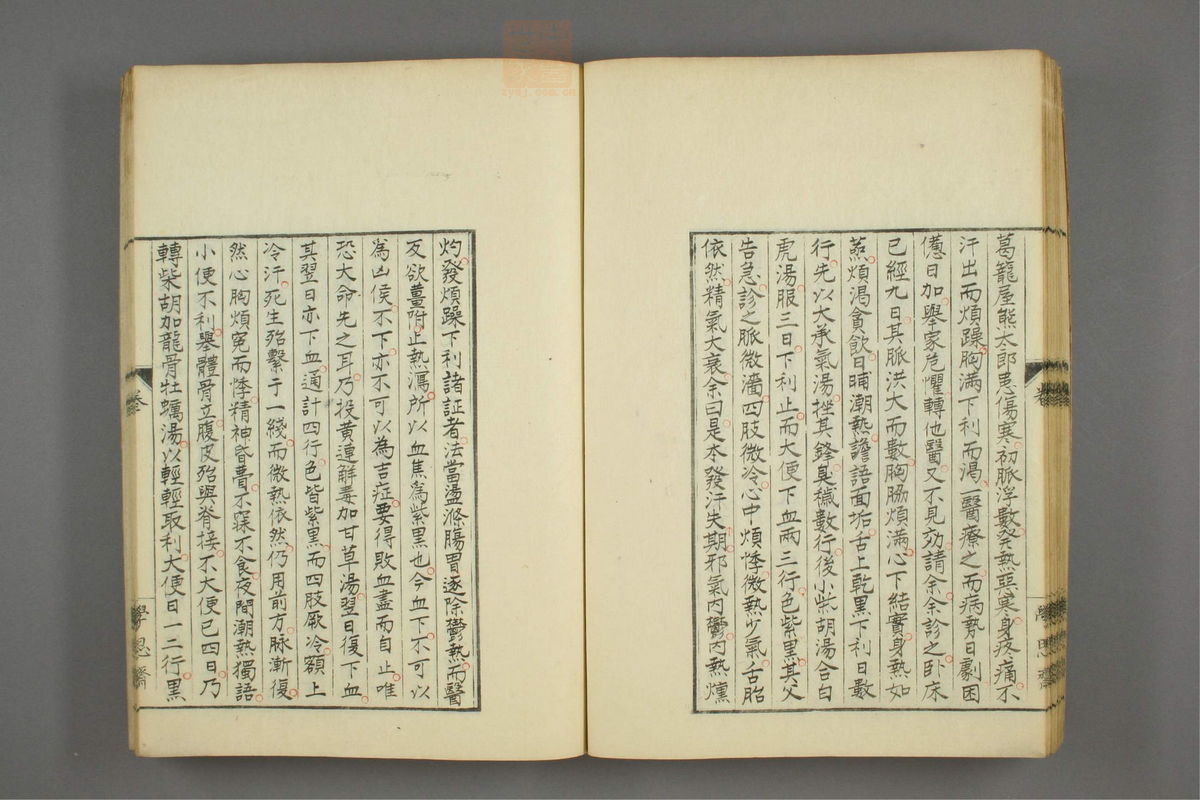 葛籠屋熊太郎患傷寒初脈浮數發熱惡寒身疼痛不
汗出而煩躁胸滿下利而渴一醫療之而病勢日劇困
憊日加舉家危懼轉他醫又不見効請余余診之臥床
已經九日其脈洪大而數胸脇煩滿心下結實身熱如
蒸煩渴貪飲日晡潮熱譫語面垢舌上乾黑下利日數
行先以大承氣湯挫其鋒臭穢數行後小柴胡湯合白
虎湯服三日下利止而大便下血兩三行色紫黑其父
告急診之脈微濇四肢微冷心中煩悸微熱少氣舌胎
依然精氣大衰余曰是本發汗失期邪氣內鬱內熱燻
灼發煩躁下利諸証者法當盪滌腸胃逐除鬱熱而醫
反欲薑附止熱瀉所以血焦為紫黑也今血下不可以
為凶侯不下亦不可以為吉症要得敗血盡而自止唯
恐大命先之耳乃投黃連解毒加甘草湯翌日復下血
其翌日亦下血通計四行色皆紫黑而四肢厥冷額上
冷汗死生殆繫于一綫而微熱依然仍用前方脉漸復
然心胸煩冤而悸精神昏瞢不寐不食夜間潮熱獨語
小便不利舉體骨立腹皮殆與脊接不大便已四日乃
轉柴胡加龍骨牡蠣湯以輕輕取利大便日一二行黑
卷
學思齋